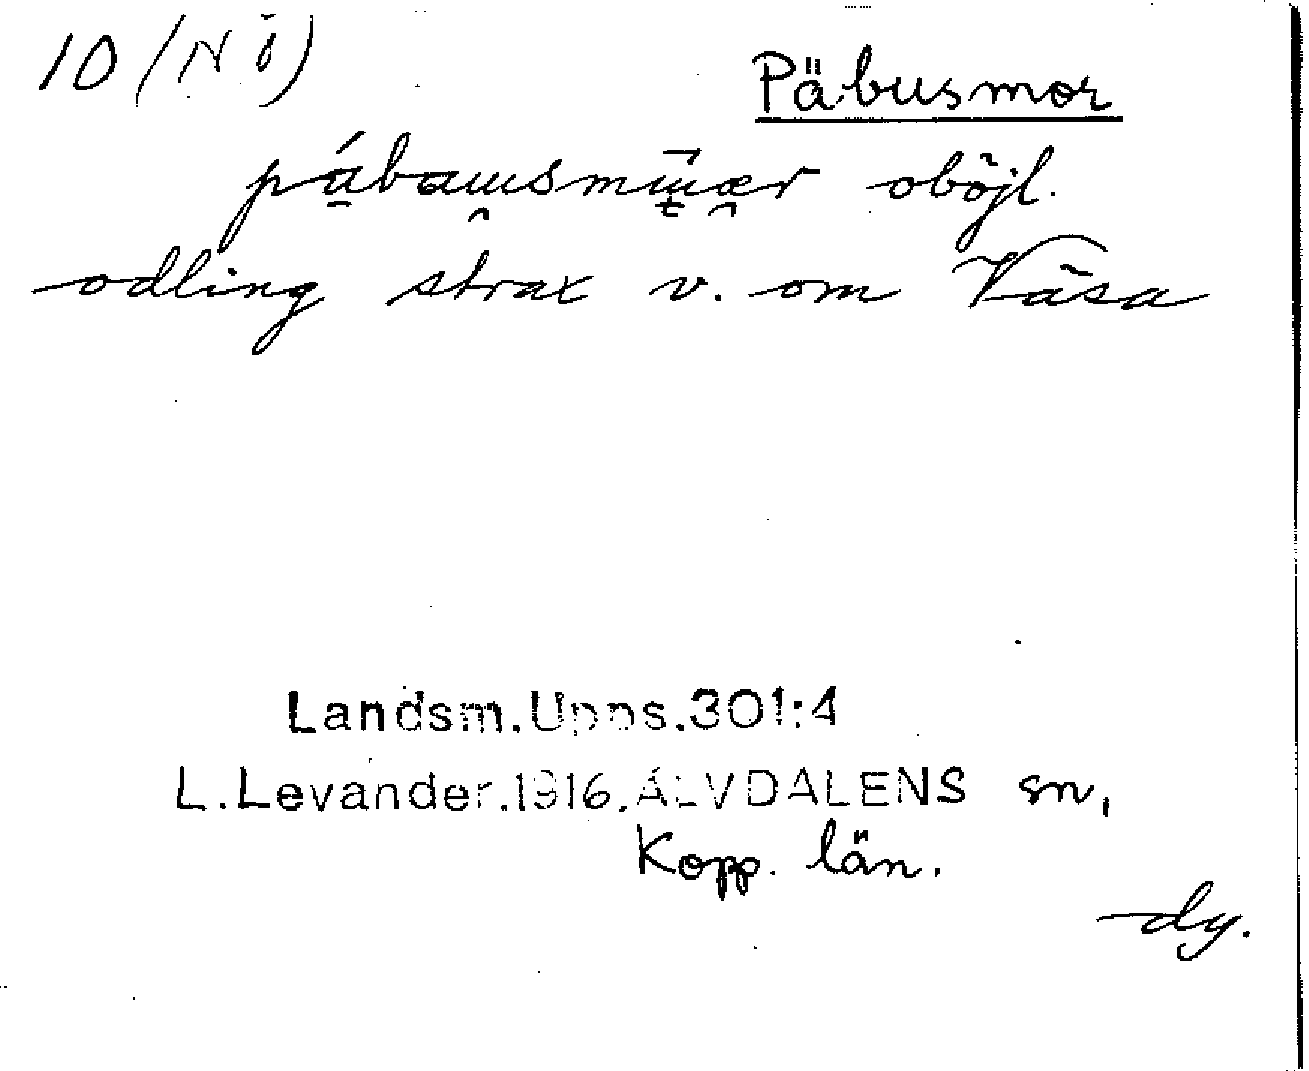 10 (NÖ)
Päbusmor
oböjl.
odling strax v. om Väsa
Landsm.Upps.301:4
L.Levander.1916.ÄLVDALENS sn,
Kopp. län.
dy.